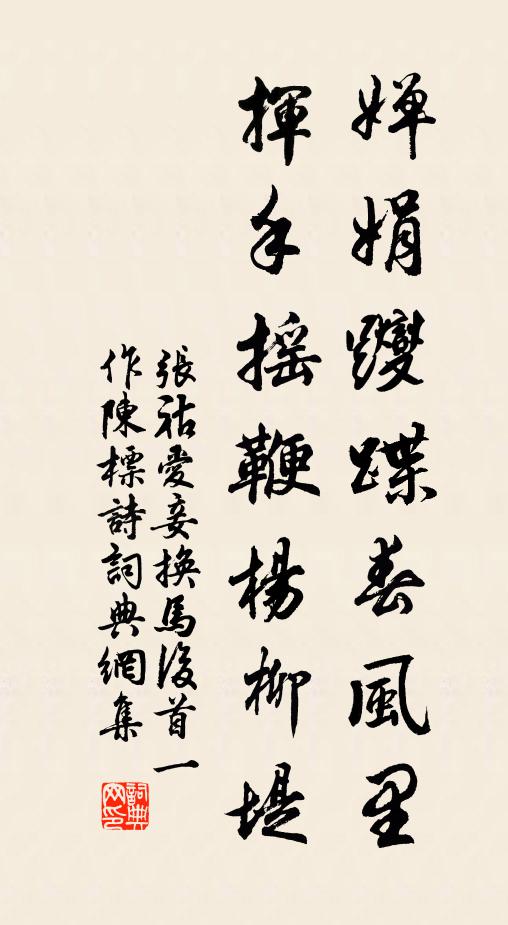 嬋娟躞蹀春風里
揮手搖鞭楊柳堤
張祜愛妾換馬後首一
作陳標詩詞典網集
詞典网印